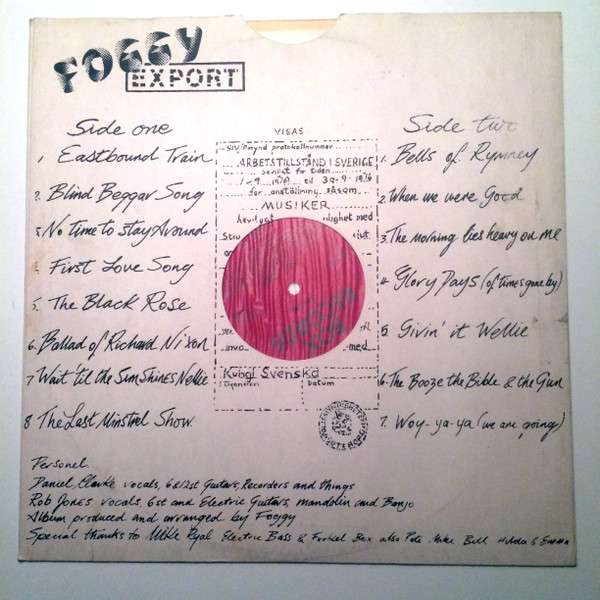 FOGGY
EXPORT
Side one
1, Eastbound Train
2. Blind Beggar Song
3, No time to stay Around
First Love Song
5. The Black Rose
6. Ballad of Richard Nixon
7 Wait 'til the Sun Shines Nellie
8 The Last Minstrel Show.
VISAS
ARBETSTILLSTÅND I SVERIGE
30-9-1976
för anställning såsom
MUSIKER
med
Kungl Svenska
Datum
Side two
1. Bells of Rymney
2. When we were Good
3. The morning lies heavy on me
4. Glory Days (of times gone by)
5 Givin' it Wellie
6. The Booze the Bible & the Gun
7. Woy-ya-ya (we are going)
Personel.
Daniel Clarke vocals, 6&12st Guitars, Recorders and things
Rob Jones vocals, 6st and Electric Guitars, mandolin and Banjo
Album produced and arranged by Foggy
Special thanks to Mike Ryal Electric Bass & Forkel Box also Pete Mike Bill Hulda & Emma